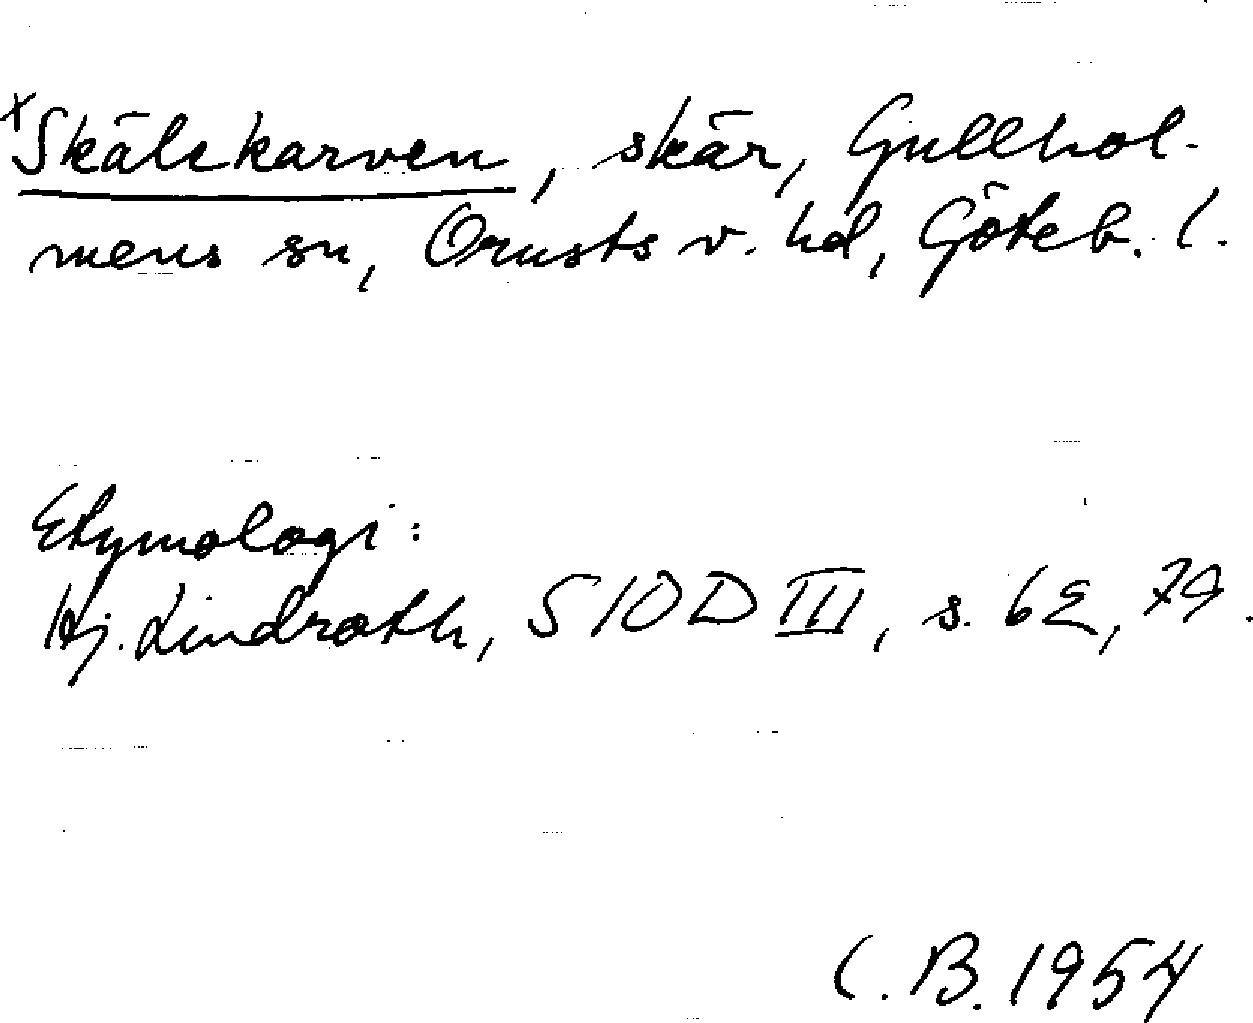 xSkälskarven, skär, Gullhol-
mens sn, Orusts v. hd, Göteb. l.
Etymologi:
Hj. Lindroth, SIOD III, s. 62, 79.
C. B. 1954